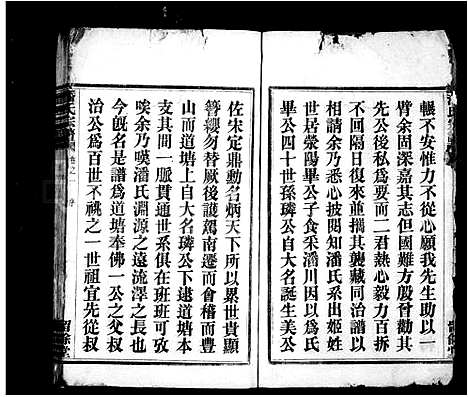 輾不安惟力不從心願我先生助以一
臂余固深嘉其志但國難方殷曾勸其
先公後私為要而二君熱心毅力百拆
不回隔日復來並攜其襲藏同治譜以
相請余乃悉心披閱知潘氏系出姬姓
世居滎陽畢公子食采潘川因以為氏
畢公四十世孫璘公自大名誕生美公
佐宋定鼎勳名炳天下所以累世貴顯
簪纓勿替厥後護駕南遷而會稽而豐
山而道塘上自大名璘公下逮道塘本
支其間一脈貫通世系俱在班班可攷
唉余乃嘆潘氏淵源之遠流澤之長也
今旣名是譜為道塘奉佛一公之父叔
治公為百世不祧之一世祖宜先從叔
潘氏宗譜
卷之一
序